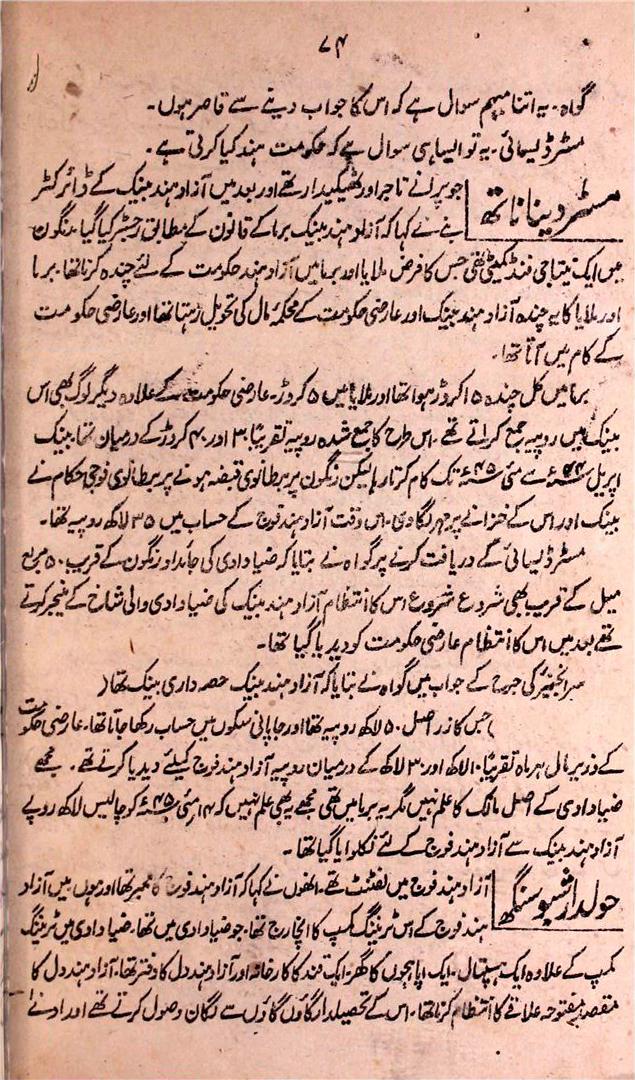 ۷۴
گواہ۔ یہ اتنا مبہم سوال ہے کہ اس کا جواب دینے سے قاصر ہوں۔
مسٹر ڈیسائی۔ یہ تو ایسا ہی سوال ہے کہ حکومت ہند کیا کرتی ہے۔
مسٹر دینا ناتھ
جو پرانے تاجر اور ٹھیکیدار تھے اور بعد میں آزاد ہند بینک کے ڈائرکٹر
بنے نے کہا کہ آزاد ہند بینک برما کے قانون کے مطابق رجسٹر کیا گیا۔ رنگون
میں ایک نیتاجی فنڈ کمیٹی تھی جس کا فرض ملایا اور برما میں آزاد ہند حکومت کے لئے چندہ کرنا تھا۔ برما
اور ملایا کا یہ چندہ آزاد ہند بینک اور عارضی حکومت کے محکمۂ مال کی تحویل رہتا تھا اور عارضی حکومت
کے کام میں آتا تھا۔
برما میں کل چندہ ۱۵ کروڑ ہوا تھا اور ملایا میں ۵ کروڑ۔ عارضی حکومت کے علاوہ دیگر لوگ بھی اس
بینک میں روپیہ جمع کراتے تھے۔ اس طرح کا جمع شدہ روپیہ تقریباً ۳۰ اور ۴۰ کروڑ کے درمیان تھا۔ بینک
اپریل ۴۴ء سے مئی ۴۵ء تک کام کرتا رہا لیکن رنگون پر برطانوی قبضہ ہونے پر برطانوی فوجی حکام نے
بینک اور اس کے خزانے پر مہر لگا دی۔ اس وقت آزاد ہند فوج کے حساب میں ۳۵ لاکھ روپیہ تھا۔
مسٹر ڈیسائی کے دریافت کرنے پر گواہ نے بتایا کہ ضیاوادی کی جائداد رنگون کے قریب ۵۰ مربع
میل کے قریب تھی شروع شروع اس کا انتظام آزاد ہند بینک کی ضیاوادی والی شاخ کے منیجر کرتے
تھے بعد میں اس کا انتظام عارضی حکومت کو دیدیا گیا تھا۔
سر انجینیر کی جرح کے جواب میں گواہ نے بتایا کہ آزاد ہند بینک حصہ داری بینک تھا (
) جس کا زر اصل ۵۰ لاکھ روپیہ تھا اور جاپانی سکوں میں حساب رکھا جاتا تھا۔ عارضی حکومت
کے وزیر مال ہر ماہ تقریباً ۱۰ لاکھ اور ۳۰ لاکھ کے درمیان روپیہ آزاد ہند فوج کیلئے دیدیا کرتے تھے۔ مجھے
ضیاوادی کے اصل مالک کا علم نہیں مگر یہ برما میں تھی مجھے یہ بھی علم نہیں کہ ۱۴ مئی ۴۵ء کو چالیس لاکھ روپے
آزاد ہند بینک سے آزاد ہند فوج کے لئے نکلوایا گیا تھا۔
حولدار شیو سنگھ
آزاد ہند فوج میں لفٹنٹ تھے۔ انھوں نے کہا کہ آزاد ہند فوج کا ممبر تھا اور ہوں۔ میں آزاد
ہند فوج کے اس ٹریننگ کمپ کا انچارج تھا۔ جو ضیاوادی میں تھا۔ ضیاوادی میں ٹریننگ
کمپ کے علاوہ ایک ہسپتال۔ ایک اپاہجوں کا گھر۔ ایک قند کا کارخانہ اور آزاد ہند دل کا دفتر تھا۔ آزاد ہند دل کا
مقصد مفتوحہ علاقے کا انتظام کرنا تھا۔ اس کے تحصیلدار گاؤں گاؤں سے لگان وصول کرتے تھے اور ادنےٰ